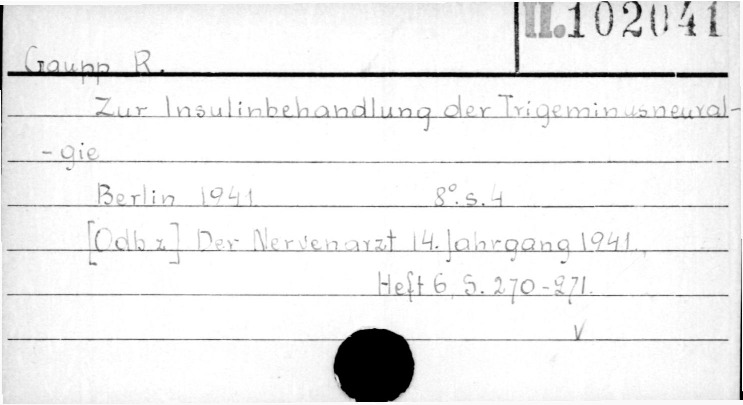 II.102041
Gaupp R.
Zur Insulinbehandlung der Trigeminusneural-
- gie
Berlin 1941. 8°. s. 4
[Odb. z] Der Nervenarzt 14. Jahrgang 1941.,
Heft 6, S. 270-271.
V